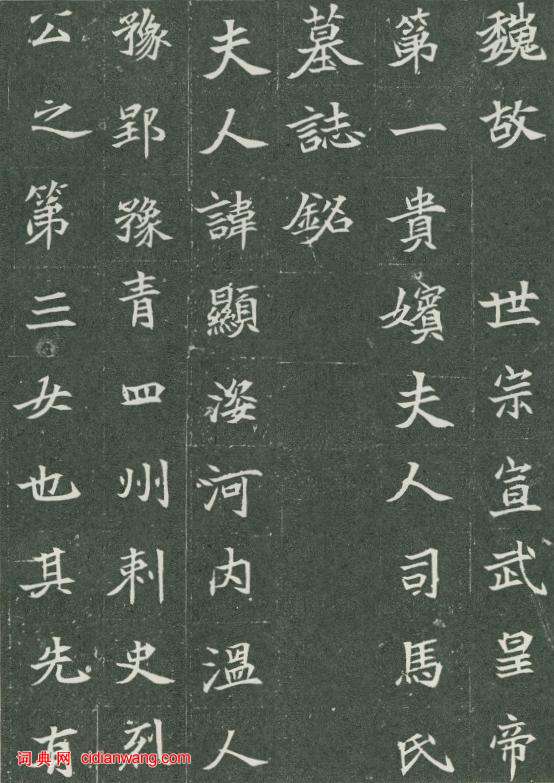 魏故　世宗宣武皇帝
第一貴嬪夫人司馬氏
墓誌銘
夫人諱顯姿河内溫人
豫郢豫青四州刺史刻
公之第三女也其先有
词典网 cidianwang.com